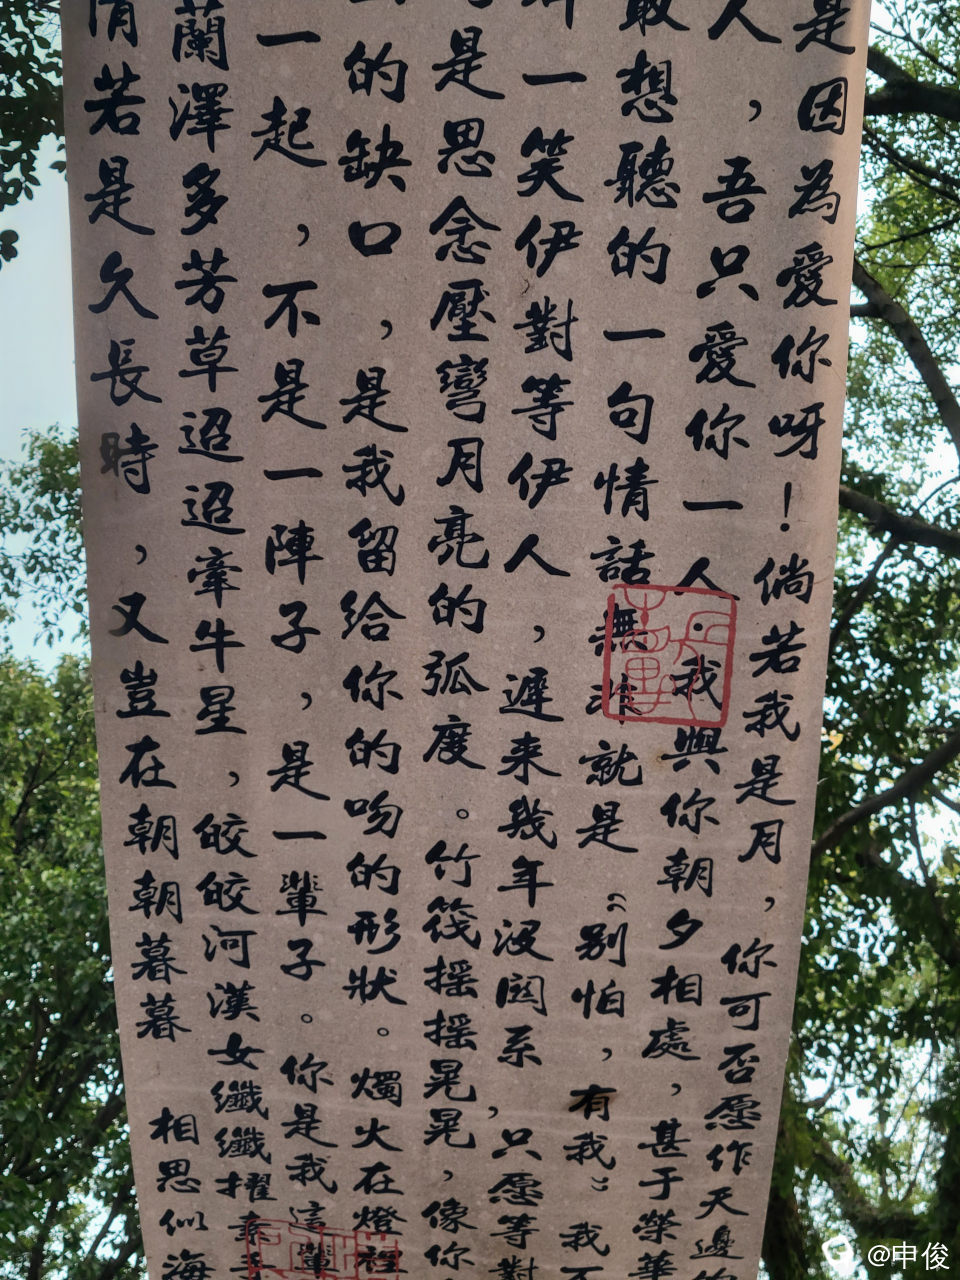 是因為愛你呀！倘若我是月，你可否愿作天邊
人，吾只愛你一人·我與你朝夕相處，甚于榮華
想聽的一句情話無非就是“别怕，有我”我不
一笑伊對等伊人，遲来幾年没関系，只愿等對
是思念壓彎月亮的弧度。竹筏摇摇晃晃，像你
的缺口，是我留给你的吻的形狀。燭火在燈
一起，不是一陣子，是一輩子。你是我這輩
蘭澤多芳草迢迢牽牛星，皎皎河漢女纖纖擢素
若是久長時，又豈在朝朝暮暮 相思似海
@申俊